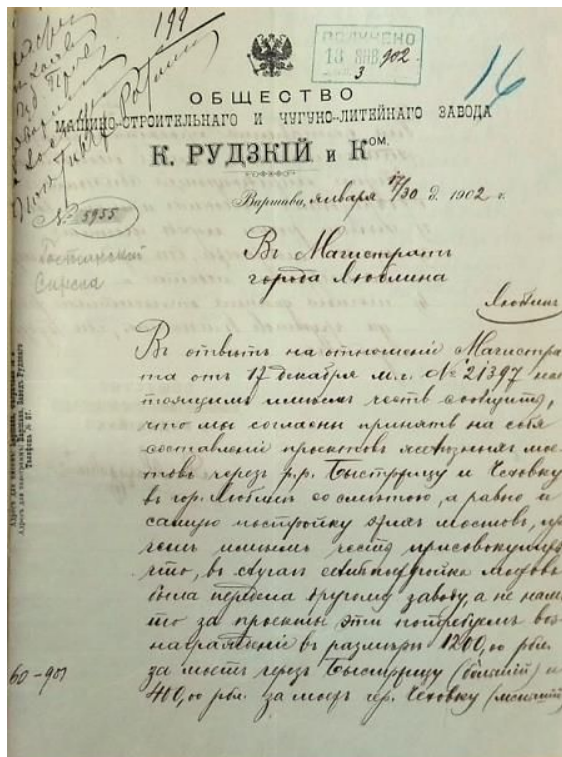 199
ПОЛУЧЕНО
18 ЯНВ 902
3
16
ОБЩЕСТВО
МАШИНО-СТРОИТЕЛЬНАГО И ЧУГУНО-ЛИТЕЙНАГО ЗАВОДА
К. РУДЗКІЙ и Ком.
Варшава, января 17/30 д. 1902 г.
№ 5955
Въ Магистратъ
города Люблина
Люблинъ
Въ отвѣтъ на отношеніе Магистра
та отъ 17 декабря м.г. № 21397 нас
тоящимъ имѣемъ честь сообщить,
что мы согласны принять на себя
составленіе проектовъ желѣзныхъ мос
товъ черезъ р.р. Быстржицу и Чеховку
въ гор. Люблинѣ со смѣтою, а равно и
самую постройку этихъ мостовъ, при
чемъ имѣемъ честь присовокупить
что, въ случаѣ если постройка мостовъ
была передана другому заводу, а не намъ
то за проекты эти потребуемъ воз
награжденіе въ размѣрѣ 1200,00 рбл.
за мостъ черезъ Быстржицу (большій) и
400,00 рбл. за мостъ чер. Чеховку (меньшій)
60-901
Телефонъ № 27.